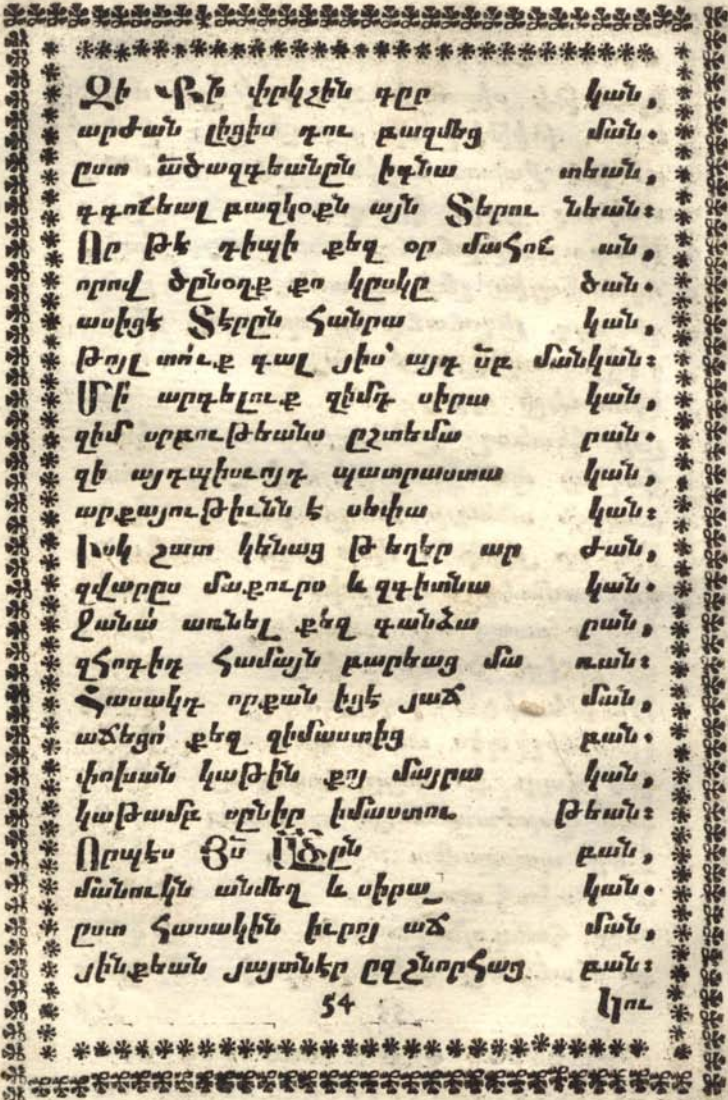 Զի ՔՍ̃ փրկչին գըր կան,
արժան լիցիս դու բազմեց ման.
ըստ ա̃ծազգեանըն իգնա տեան,
գգուեալ բազկօքն այն Տերու նեան:
Որ թէ դիպի քեզ օր մահու ան,
որով ծընօղք քո կըսկը ծան.
ասիցէ Տէրըն հանրա կան,
թոյլ տո՛ւք գալ յիս՝ այդ ս̃բ մանկան:
Մի՛ արգելուք զիմդ սիրա կան,
զիմ սրբութեանս ըշտեմա րան.
զի այդպիսւոյդ պատրաստա կան,
արքայութիւնն է սեփա կան:
Իսկ շատ կենաց թ եղեր ար ժան,
զվարըս մաքուրս և զգիտնա կան.
Ջանա՛ առնել քեզ գանձա րան,
զհոգիդ համայն բարեաց մա ռան:
Հասակդ որքան իցէ յաճ ման,
աճեցո՛ քեզ զիմաստից բան.
փոխան կաթին քոյ մայրա կան,
կաթամբ սընիր իմաստու թեան:
Որպէս Յս̃ Ա̃Ծըն բան,
մանուկն անմեղ և սիրա_ կան.
ըստ հասակին իւրոյ աճ ման,
յինքեան յայտնէր ըզշնորհաց բան:
54 Կու